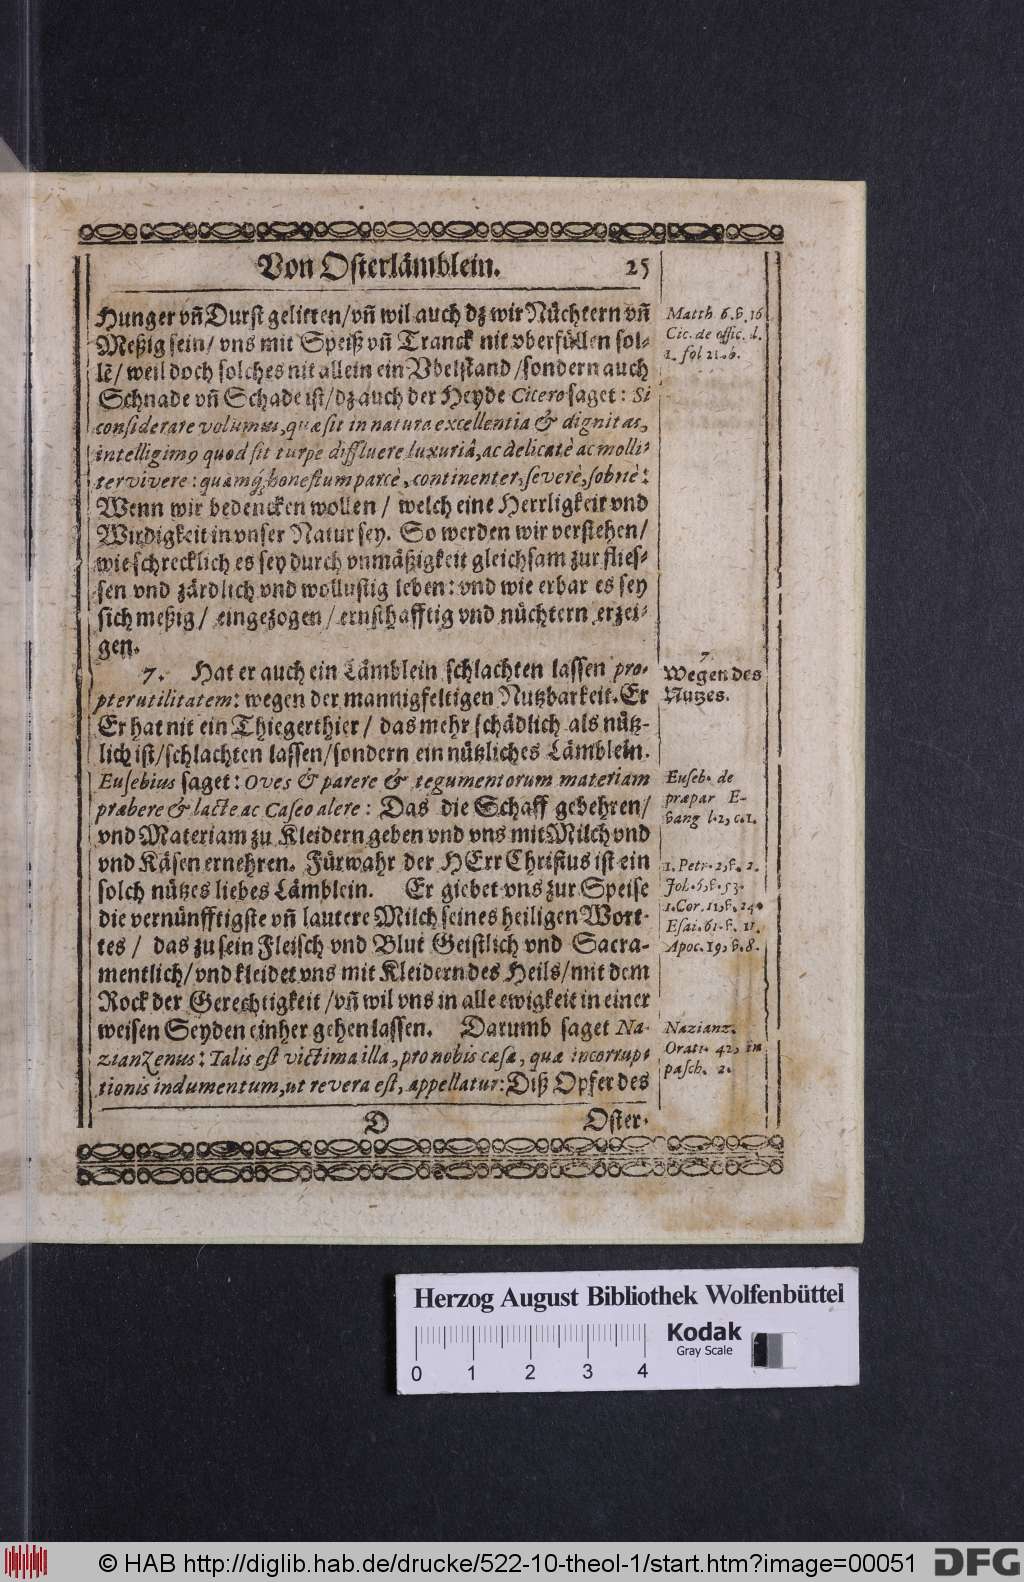 Von Osterlämblein. 25
Hunger vñ Durst gelitten/vñ wil auch dz wir Nüchtern vñ
Meßig sein/ vns mit Speiß vñ Tranck nit vberfüllen sol-
lē/ weil doch solches nit allein ein Vbelstand /sondern auch
Schnade vñ Schade ist/dz auch der Heyde Cicero saget: Si
considerare volumus, quæ sit in natura excellentia & dignitas,
intelligimꝰ quod sit turpe diffluere luxuriâ, ac delicatè ac molli-
ter vivere: quamq́; honestum parcè, continenter, severè, sobriè:
Wenn wir bedencken wollen / welch eine Herrligkeit vnd
Wirdigkeit in vnser Natur sey. So werden wir verstehen/
wie schrecklich es sey durch vnmäßigkeit gleichsam zur flies-
sen vnd zärdlich vnd wollustig leben: vnd wie erbar es sey
sich meßig/ eingezogen /ernsthafftig vnd nüchtern erzei-
gen.
7. Hat er auch ein Lämblein schlachten lassen pro-
pter utilitatem: wegen der mannigfeltigen Nutzbarkeit. Er
Er hat nit ein Thiegerthier / das mehr schädlich als nütz-
lich ist/schlachten lassen/sondern ein nützliches Lämblein.
Eusebius saget: Oves & parere & tegumentorum materiam
præbere & lacte ac Caseo alere: Das die Schaff gebehren/
vnd Materiam zu Kleidern geben vnd vns mit Milch vnd
vnd Käsen ernehren. Fürwahr der HErr Christus ist ein
solch nützes liebes Lämblein. Er giebet vns zur Speise
die vernünfftigste vñ lautere Milch seines heiligen Wort-
tes / das zu sein Fleisch vnd Blut Geistlich vnd Sacra-
mentlich/vnd kleidet vns mit Kleidern des Heils/mit dem
Rock der Gerechtigkeit /vñ wil vns in alle ewigkeit in einer
weisen Seyden einher gehen lassen. Darumb saget Na-
zianzenus: Talis est victima illa, pro nobis cæsa, quæ incorrup-
tionis indumentum, ut revera est, appellatur: Diß Opfer des
D Oster-
Matth 6. v. 16
Cic. de offic. l.
1. fol 21. b.
7.
Wegen des
Nutzes.
Euseb. de
præpar E-
vang l. 2, c. 1.
1. Petr. 2, v. 2.
Joh. 6, v. 53.
1. Cor. 11, v. 24.
Esai. 61. v. 11.
Apoc. 19, v. 8.
Nazianz.
Orat. 42, in
pasch. 2.
Herzog August Bibliothek Wolfenbüttel
Kodak
Gray Scale
0 1 2 3 4
© HAB http://diglib.hab.de/drucke/522-10-theol-1/start.htm?image=00051
DFG